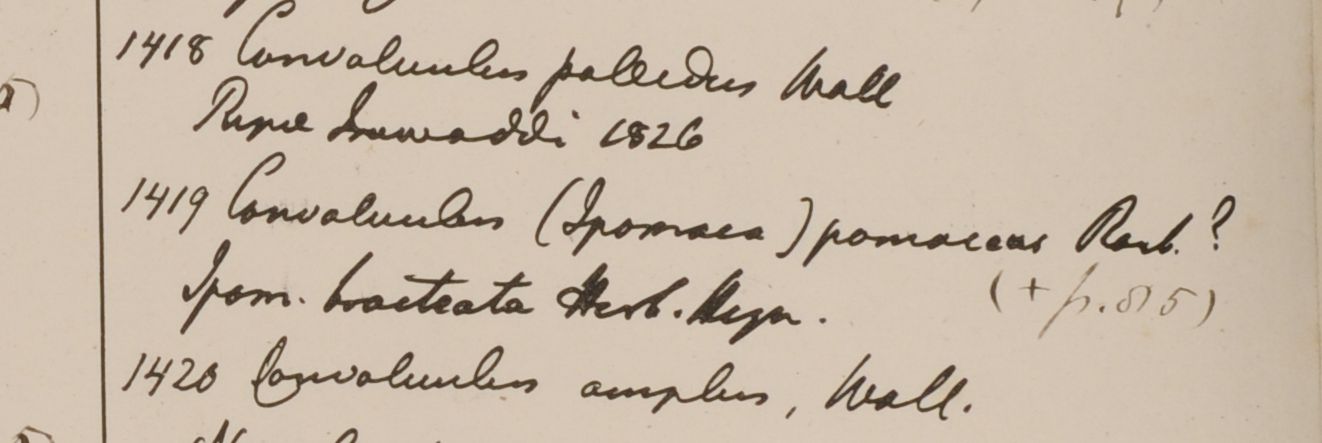 1418 Convolvulus pallidus Wall
Ripæ Irrawaddi 1826
1419 Convolvulus (Ipomaea) pomaceus Roxb. ?
Ipom. bracteata Herb. Heyn.
(+ p. 85)
1420 Convolvulus amplus, Wall.